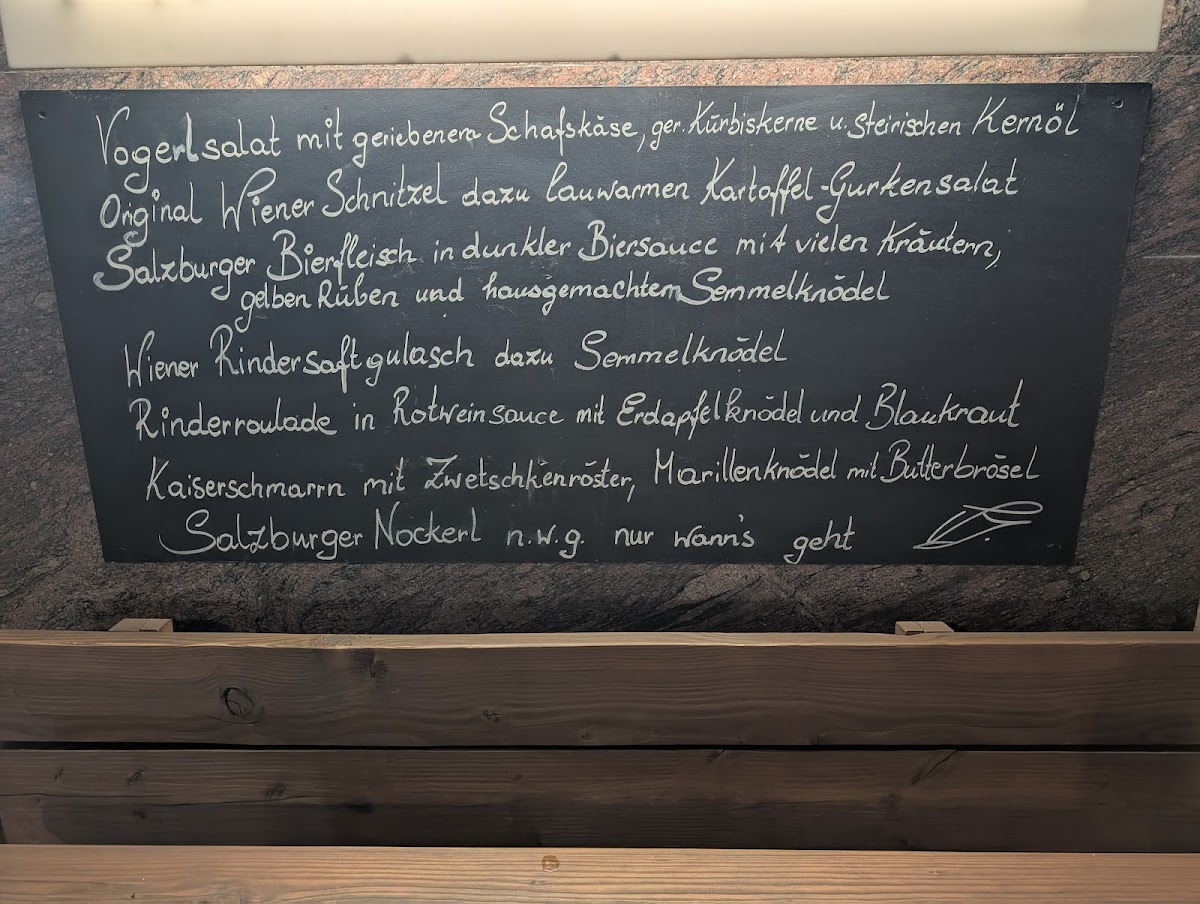 Vogerlsalat mit geriebenem Schafskäse, ger. Kürbiskerne u. steirischen Kernöl
Original Wiener Schnitzel dazu lauwarmen Kartoffel-Gurkensalat
Salzburger Bierfleisch in dunkler Biersauce mit vielen Kräutern,
gelben Rüben und hausgemachtem Semmelknödel
Wiener Rindersaftgulasch dazu Semmelknödel
Rinderroulade in Rotweinsauce mit Erdapfelknödel und Blaukraut
Kaiserschmarrn mit Zwetschkenröster, Marillenknödel mit Butterbrösel
Salzburger Nockerl n.w.g. nur wann's geht